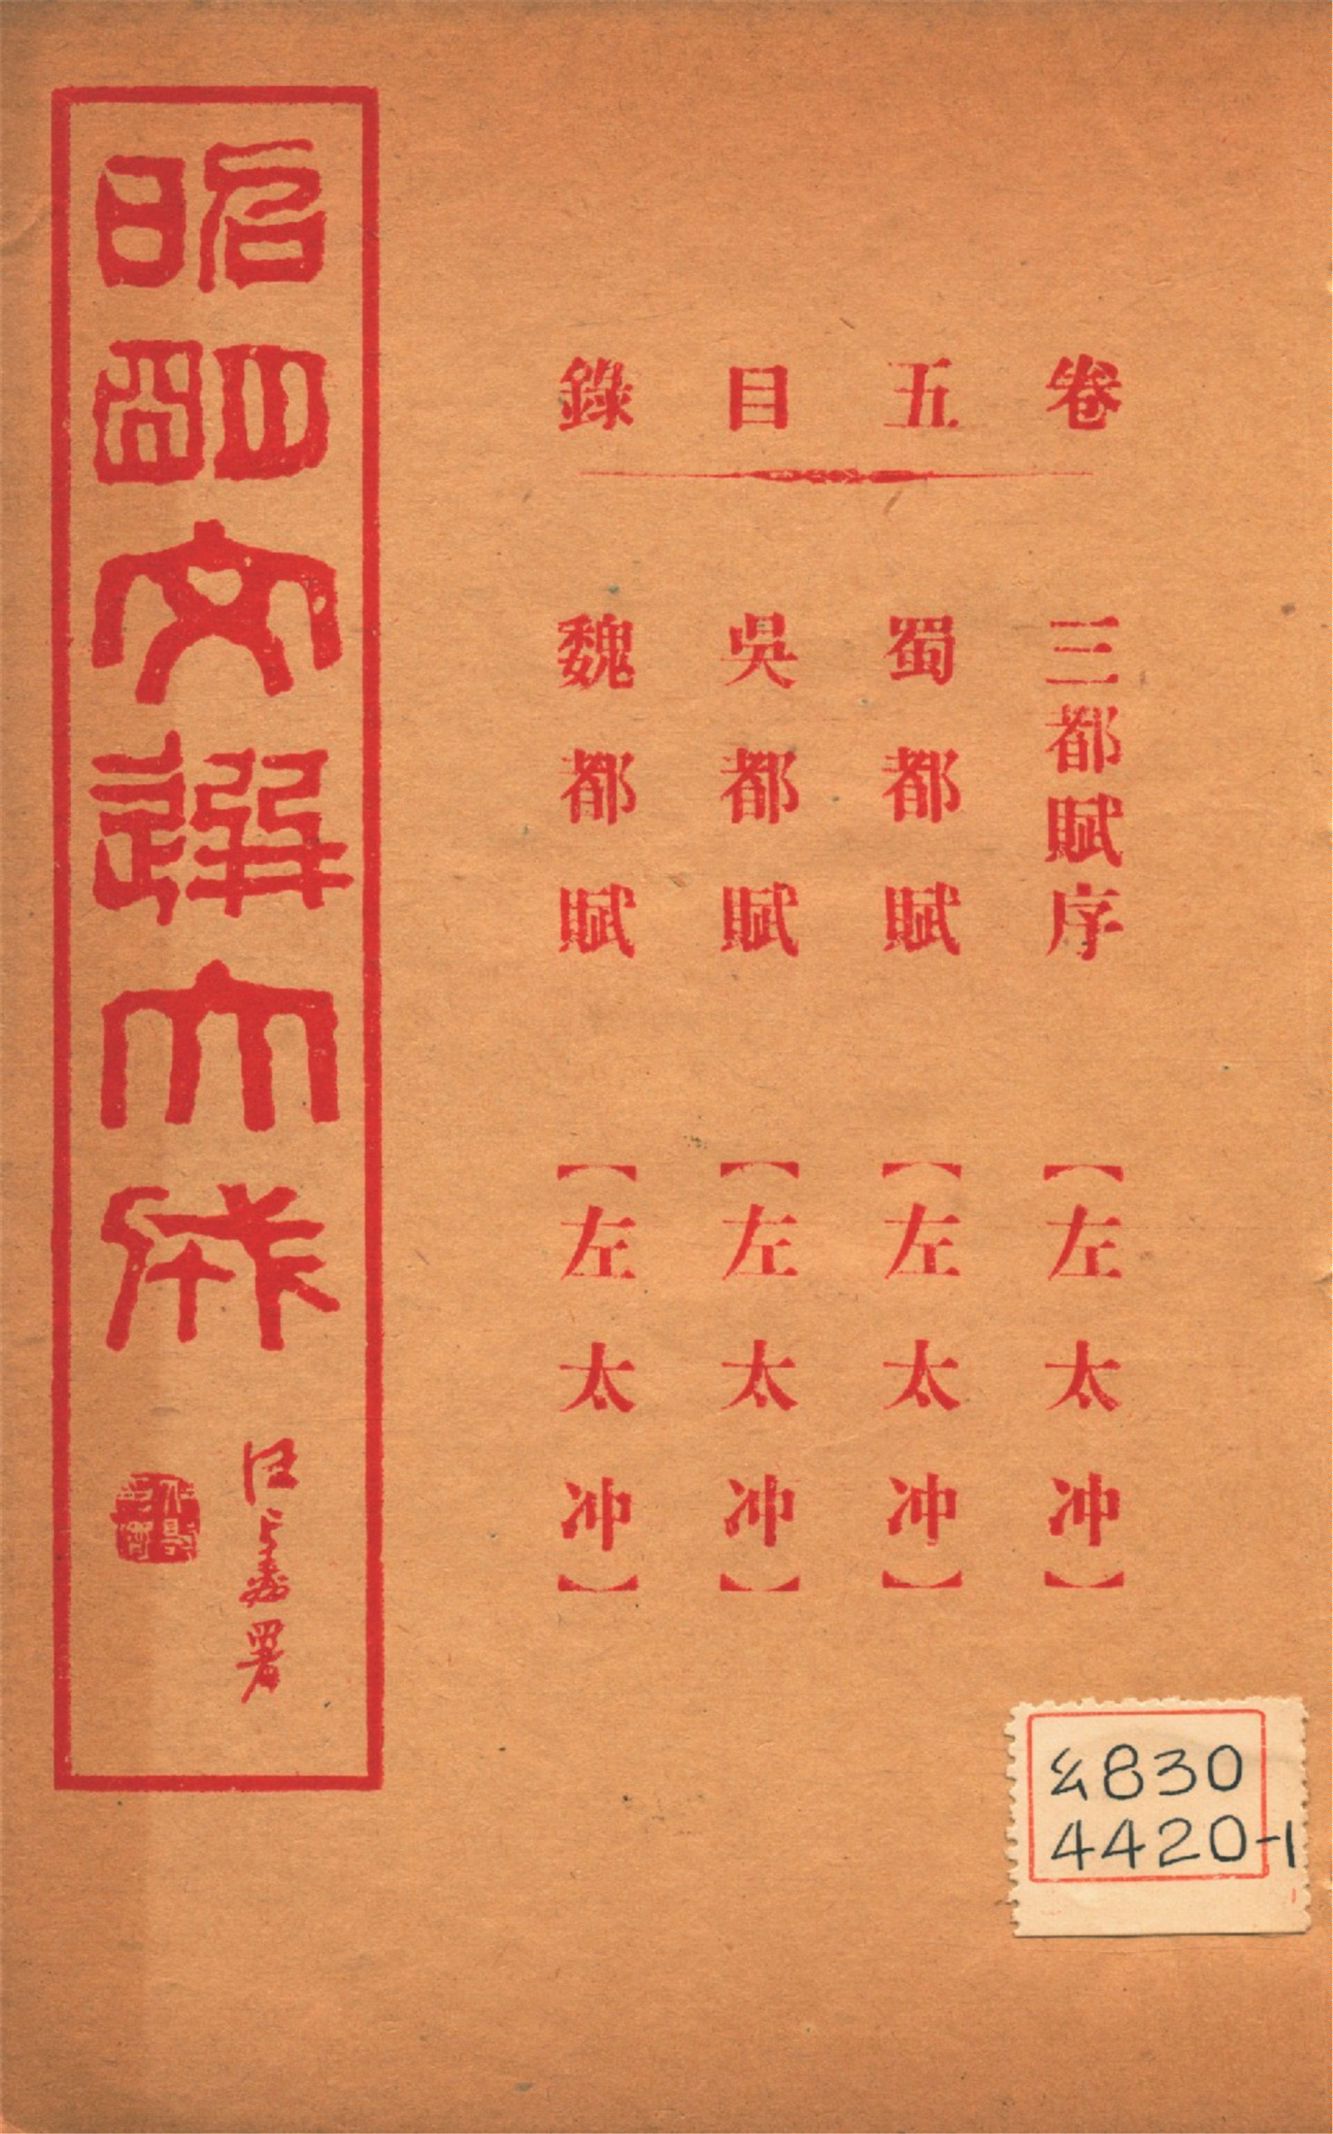 卷五目錄
三都賦序【左太冲】
蜀都賦【左太冲】
吳都賦【左太冲】
魏都賦【左太冲】
昭明文選大成
署
830
4420-1